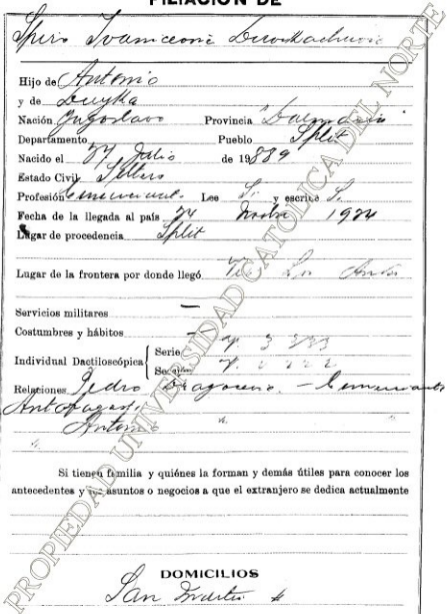 FILIACION DE
Spiro Ivanicevic
Hijo de Antonio
y de Duyka
Nación Yugoslavo Provincia Dalmacia
Departamento Pueblo Split
Nacido el Julio de 1889
Estado Civil Soltero
Profesión Comerciante Lee Si y escribe Si
Fecha de la llegada al país 24 1924
Lugar de procedencia Split
Lugar de la frontera por donde llegó Los Andes
Servicios militares —
Costumbres y hábitos —
Individual Dactiloscópica { Serie V. 3 333
Sección V. 2 222
Relaciones Pedro — Comerciante
Antofagasta
Antonio "
"
Si tienen familia y quiénes la forman y demás útiles para conocer los
antecedentes y los asuntos o negocios a que el extranjero se dedica actualmente
DOMICILIOS
San Martin
PROPIEDAD UNIVERSIDAD CATOLICA DEL NORTE